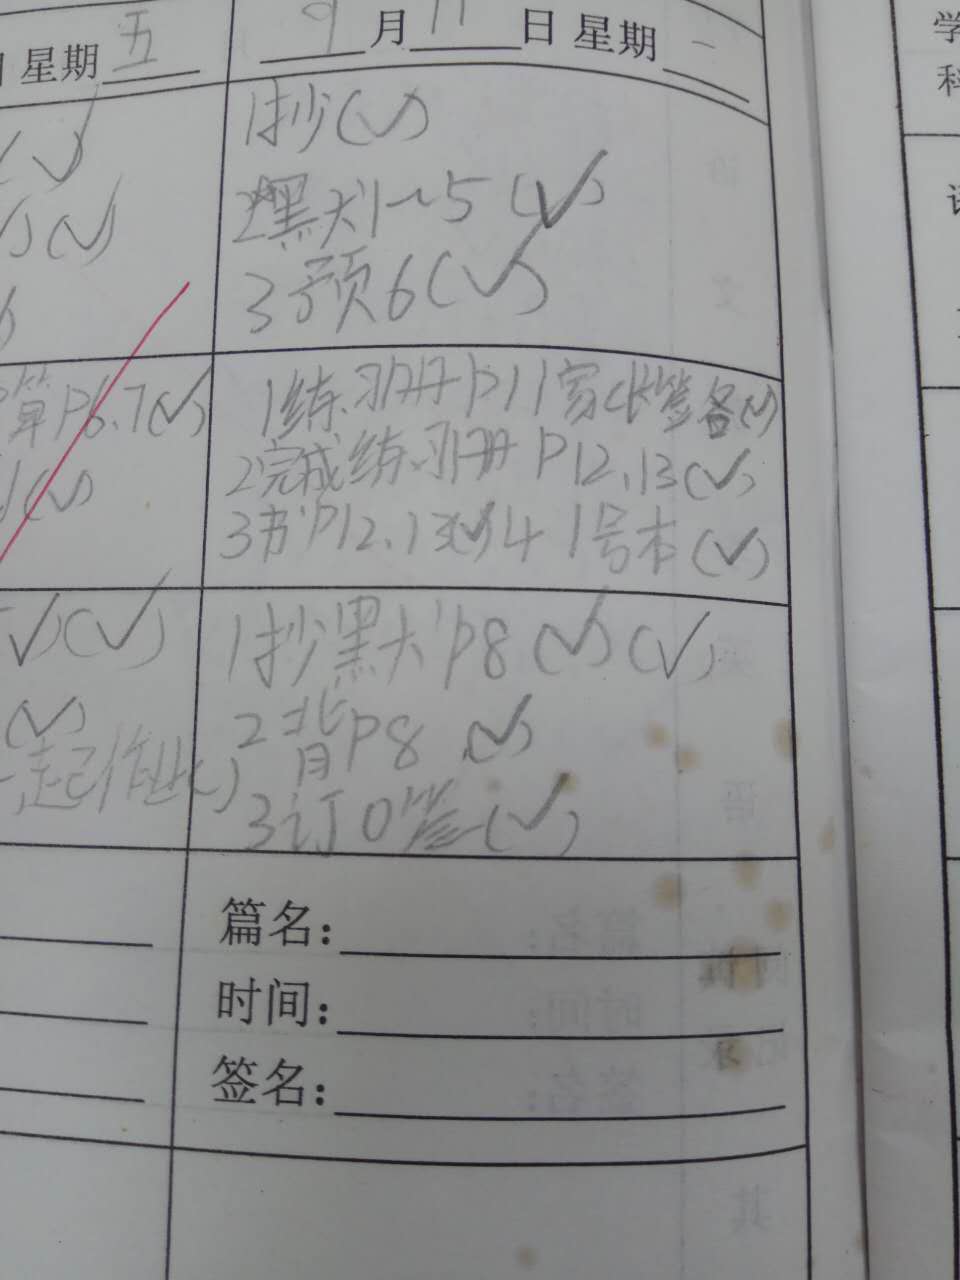 星期五
9月11日 星期一
学
科
(√)
(√)
算P6.7(√)
(√)
(√)(√)
(√)
一起作业
1抄(√)
2默1~5(√)
3预6(√)
1练习册P11家长签名(√)
2完成练习册P12.13(√)
3书P12.13(√)14 1号本(√)
1抄默P8(√)(√)
2背P8 (√)
3订0签(√)
篇名:
时间:
签名: